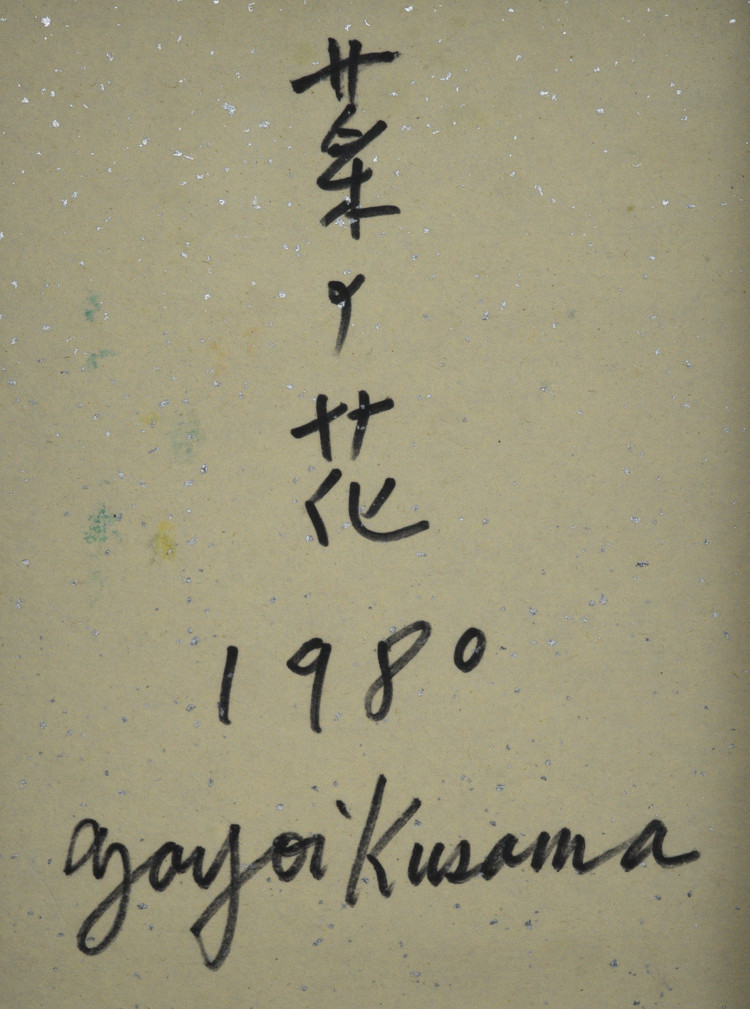 菜の花
1980
Yayoi Kusama